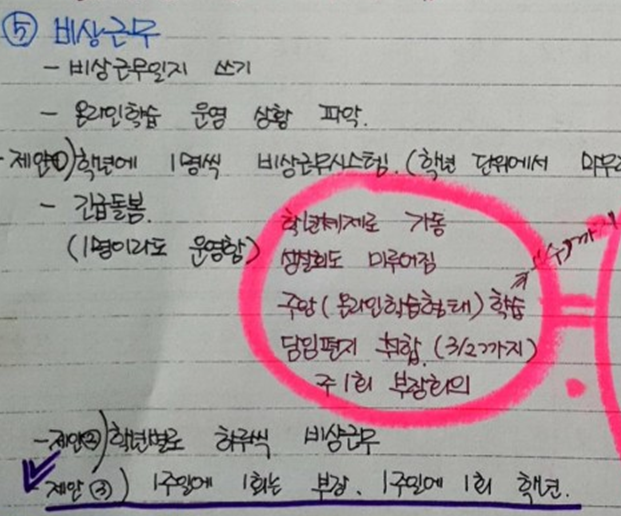 ⑤ 비상근무
- 비상근무일지 쓰기
- 온라인학습 운영 상황 파악.
- 제안①) 학년에 1명씩 비상근무시스템. (학년 단위에서
- 긴급돌봄.
(1명이라도 운영함)
학년체제로 가동
생활회도 미루어짐
주안 (온라인학습형태) 학습
담임편지 취합. (3/2까지)
주 1회 부장회의
- 제안②) 학년별로 하루씩 비상근무
- 제안③) 1주일에 1회는 부장. 1주일에 1회 학년.